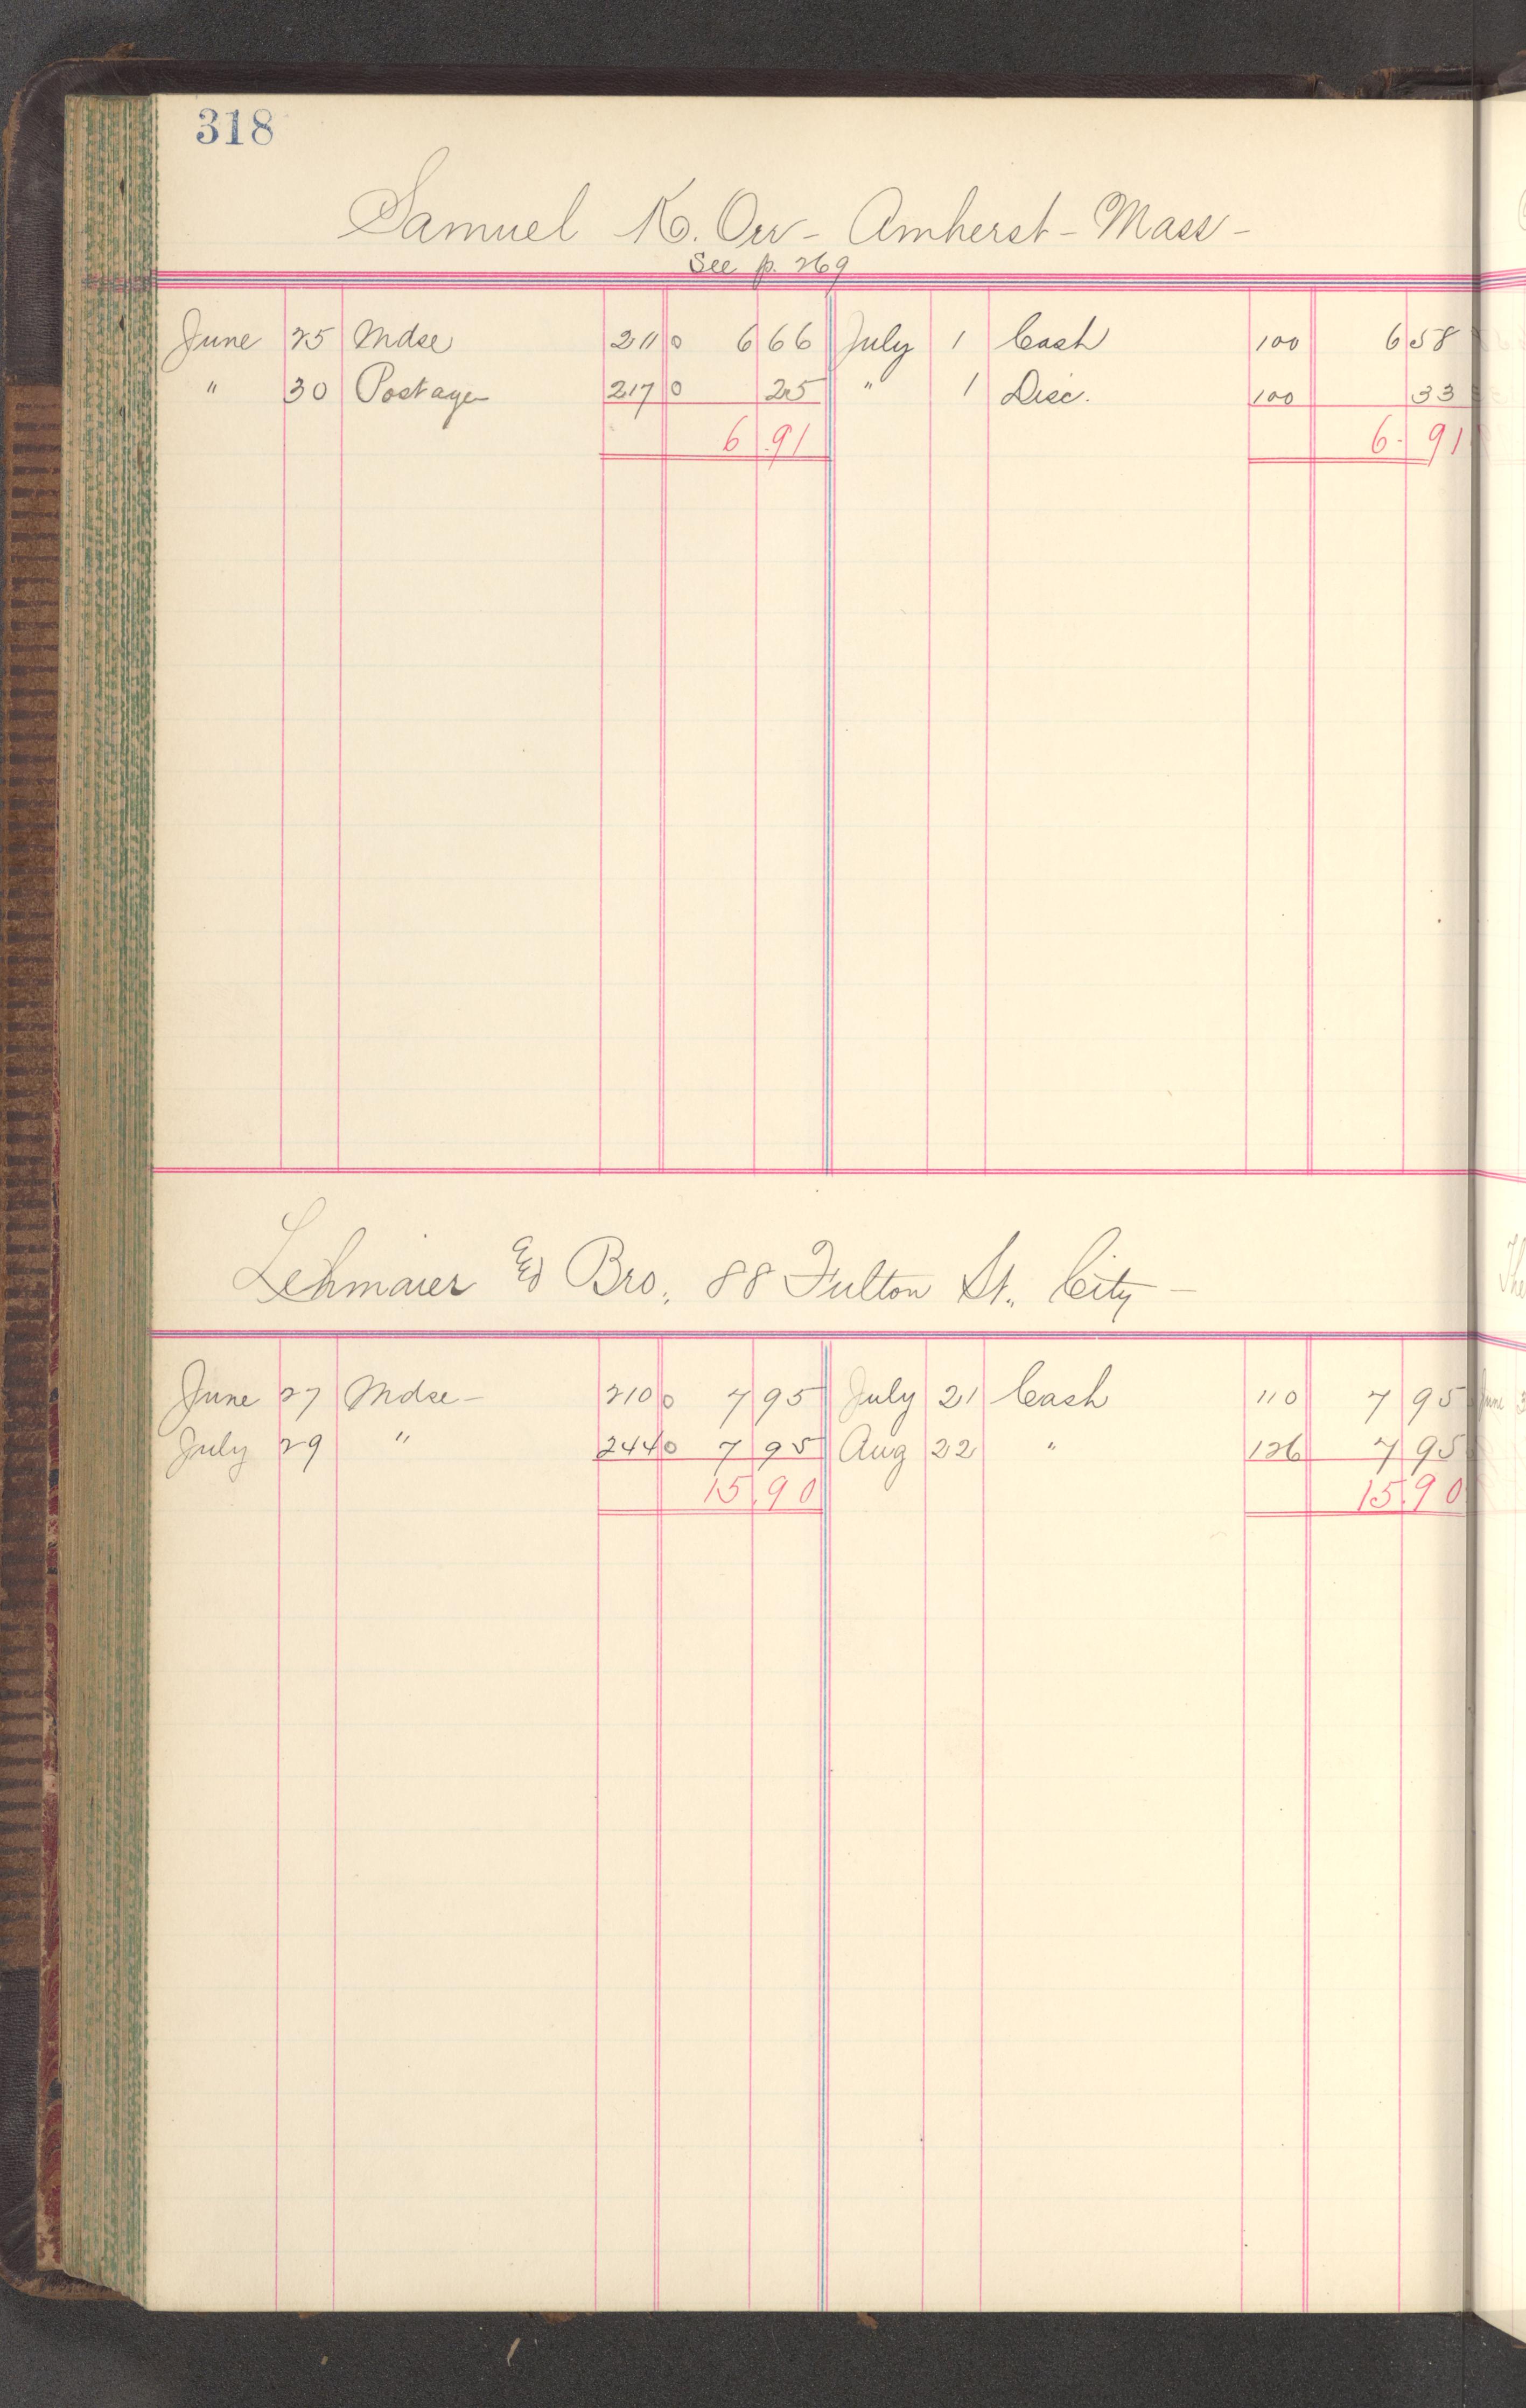 318
Samuel K. Orr - Amherst - Mass -
See p. 269
June 25 Mdse 211 0 6 66 July 1 Cash 100 6 58
" 30 Postage 217 0 25 " 1 Disc. 100 33
6.91 6.91
Lehmaier & Bro., 88 Fulton St., City -
June 27 Mdse - 210 0 7 95 July 21 Cash 110 7 95
July 29 " 244 0 7 95 Aug 22 " 126 7 95
15.90 15.90